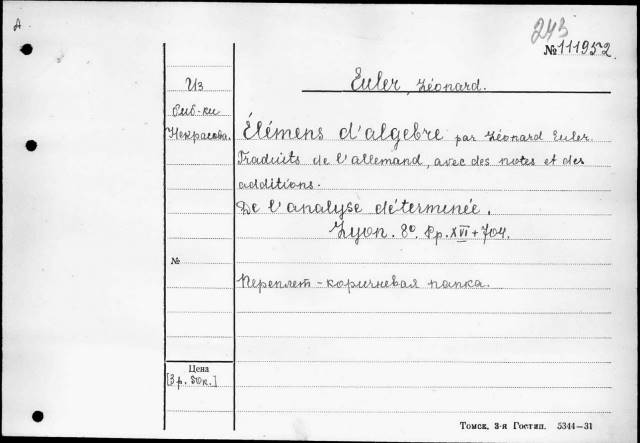 А
243
№ 111952
Из
биб-ки
Некрасова.
Euler, Léonard.
Élémens d'algebre par Léonard Euler.
Traduits de l'allemand, avec des notes et des
additions.
De l'analyse déterminée.
Lyon. 8º. Pp. XVI + 704.
№
Переплет - коричневая папка.
Цена
[3 р. 50 к.]
Томск, 3-я Гостип. 5344—31